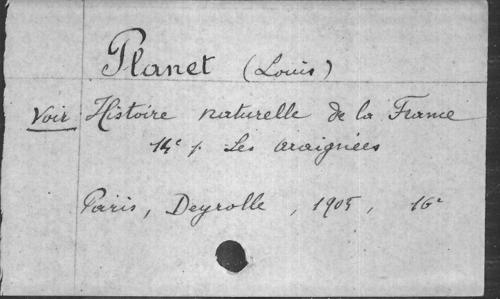 Planet (Louis)
Voir Histoire naturelle de la France
14e p. Les araignées
Paris, Deyrolle, 1905, 16°